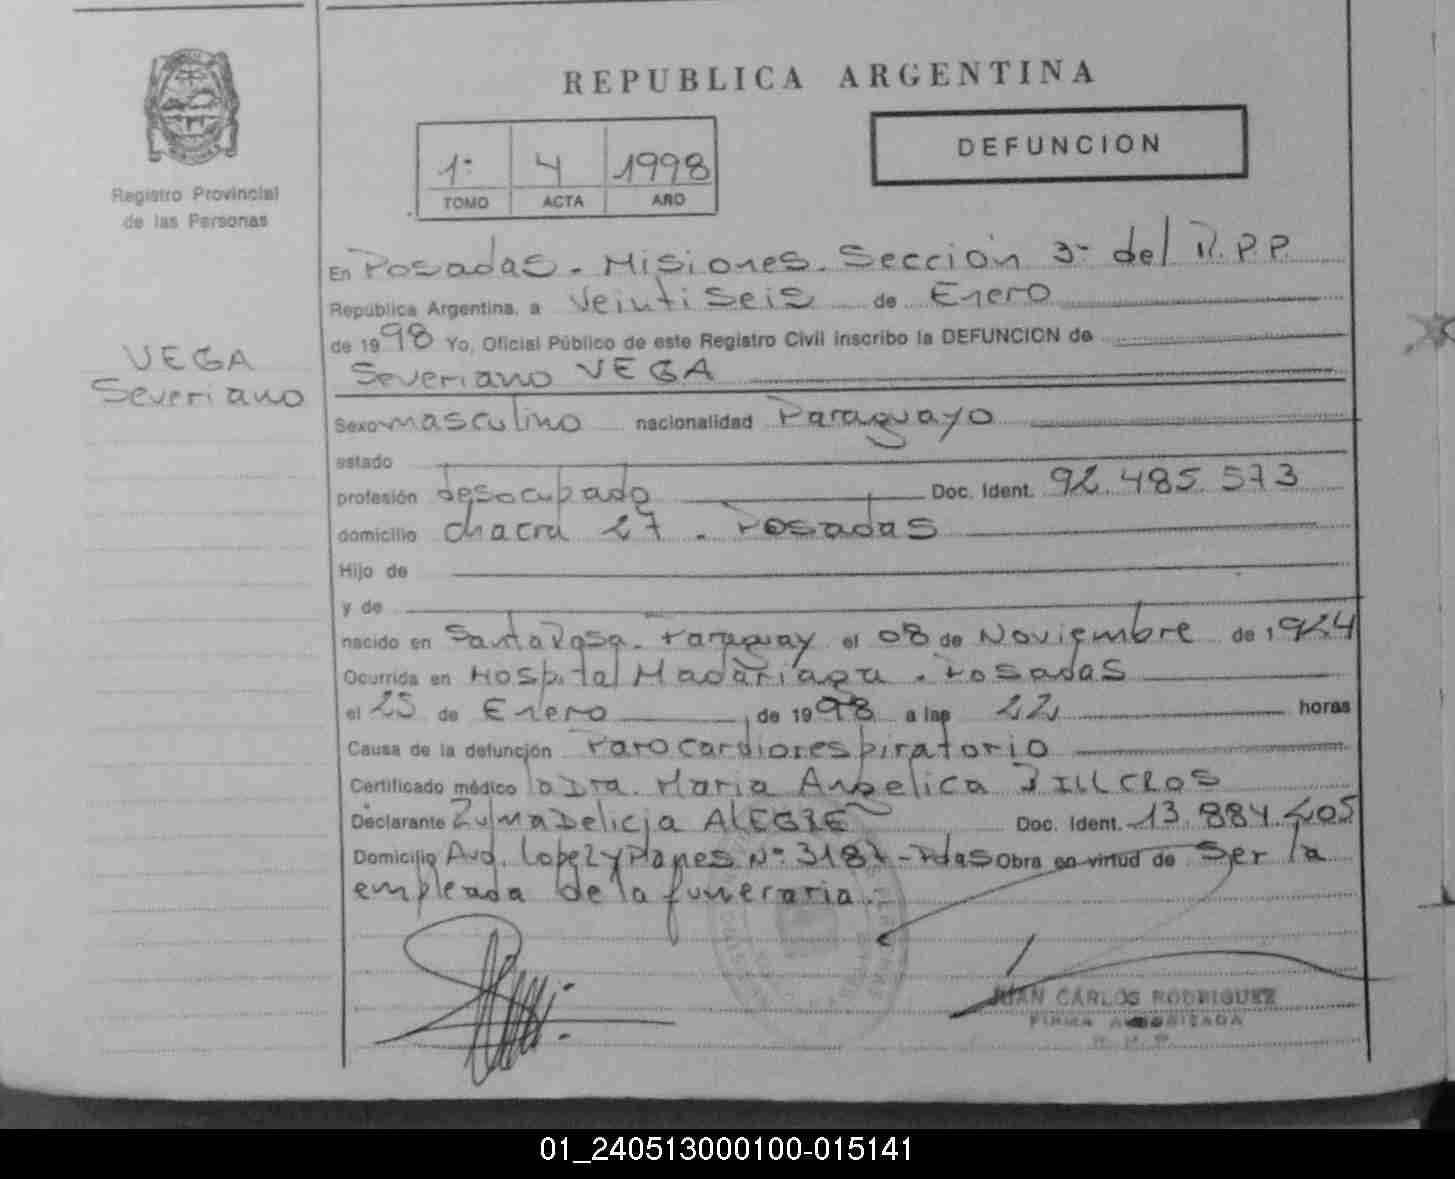 REPUBLICA ARGENTINA
DEFUNCION
1: 4 1998
TOMO ACTA AÑO
Registro Provincial
de las Personas
VEGA
Severiano
En Posadas - Misiones. Sección 3ª del R.P.P.
República Argentina, a Veinti Seis de Enero
de 1998 Yo, Oficial Público de este Registro Civil inscribo la DEFUNCION de
Severiano VEGA
Sexo masculino nacionalidad Paraguayo
estado
profesión desocupado Doc. Ident. 92.485.573
domicilio Chacra 27 - Posadas
Hijo de
y de
nacido en Santa Rosa - Paraguay el 08 de Noviembre de 19
Ocurrida en Hospital Madariaga - Posadas
el 25 de Enero de 1998 a las 22 horas
Causa de la defunción Paro cardiorespiratorio
Certificado médico la Dra. Maria Angelica
Declarante Zulma Delicia ALEGRE Doc. Ident. 13.884.
Domicilio Avd. Lopez y Planes Nº 3187 - Pdas Obra en virtud de Ser la
empleada de la funeraria.
JUAN CARLOS RODRIGUEZ
FIRMA AUTORIZADA
R. P. P.
01_240513000100-015141